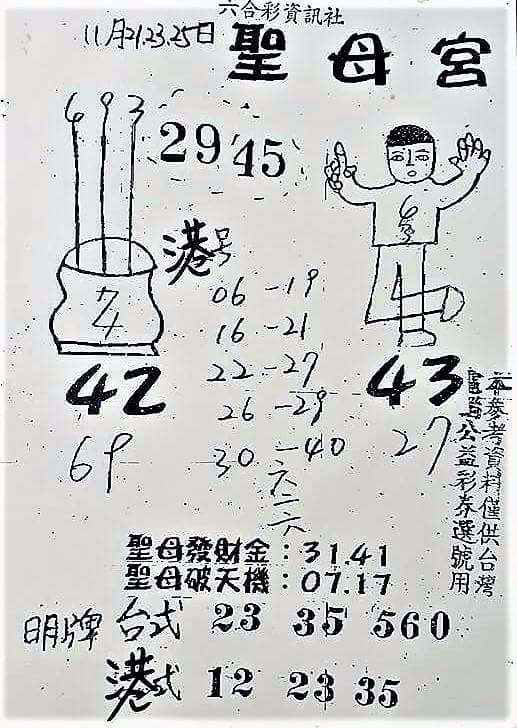 六合彩資訊社
11月21.23.25日
聖母宮
6 9 3
29 45
港号
06-19
16-21
22-27
26-29
30-40
六二六
42
69
43
27
本參考資料僅供台灣
公益彩券選號用
聖母發財金:31.41
聖母破天機:07.17
明牌 台式 23 35 560
港式 12 23 35